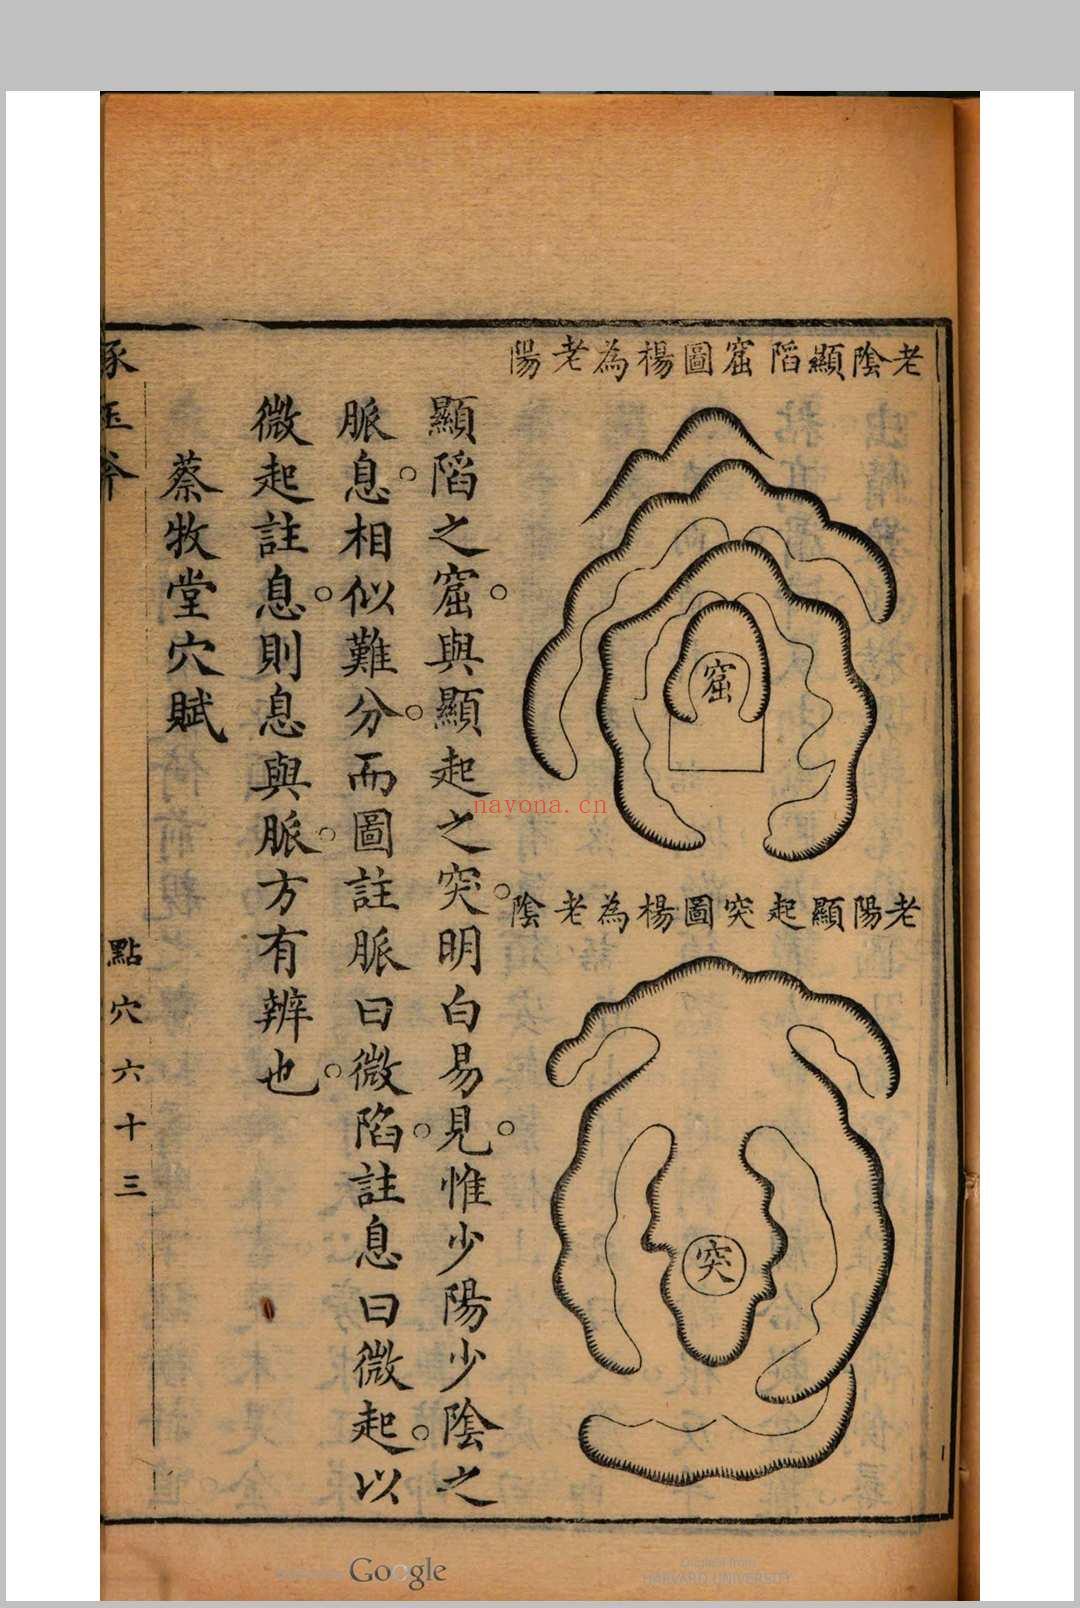 老陰顯陷窟圖楊為老陽
窟
老陽顯起突圖楊為老陰
突
顯陷之窟與顯起之突明白易見惟少陽少陰之
脈息相似難分而圖註脈曰微陷註息曰微起以
微起註息則息與脈方有辨也
蔡牧堂穴賦
琢玉斧
點穴 六十三
nayona.cn
Google
Original from
HARVARD UNIVERSITY